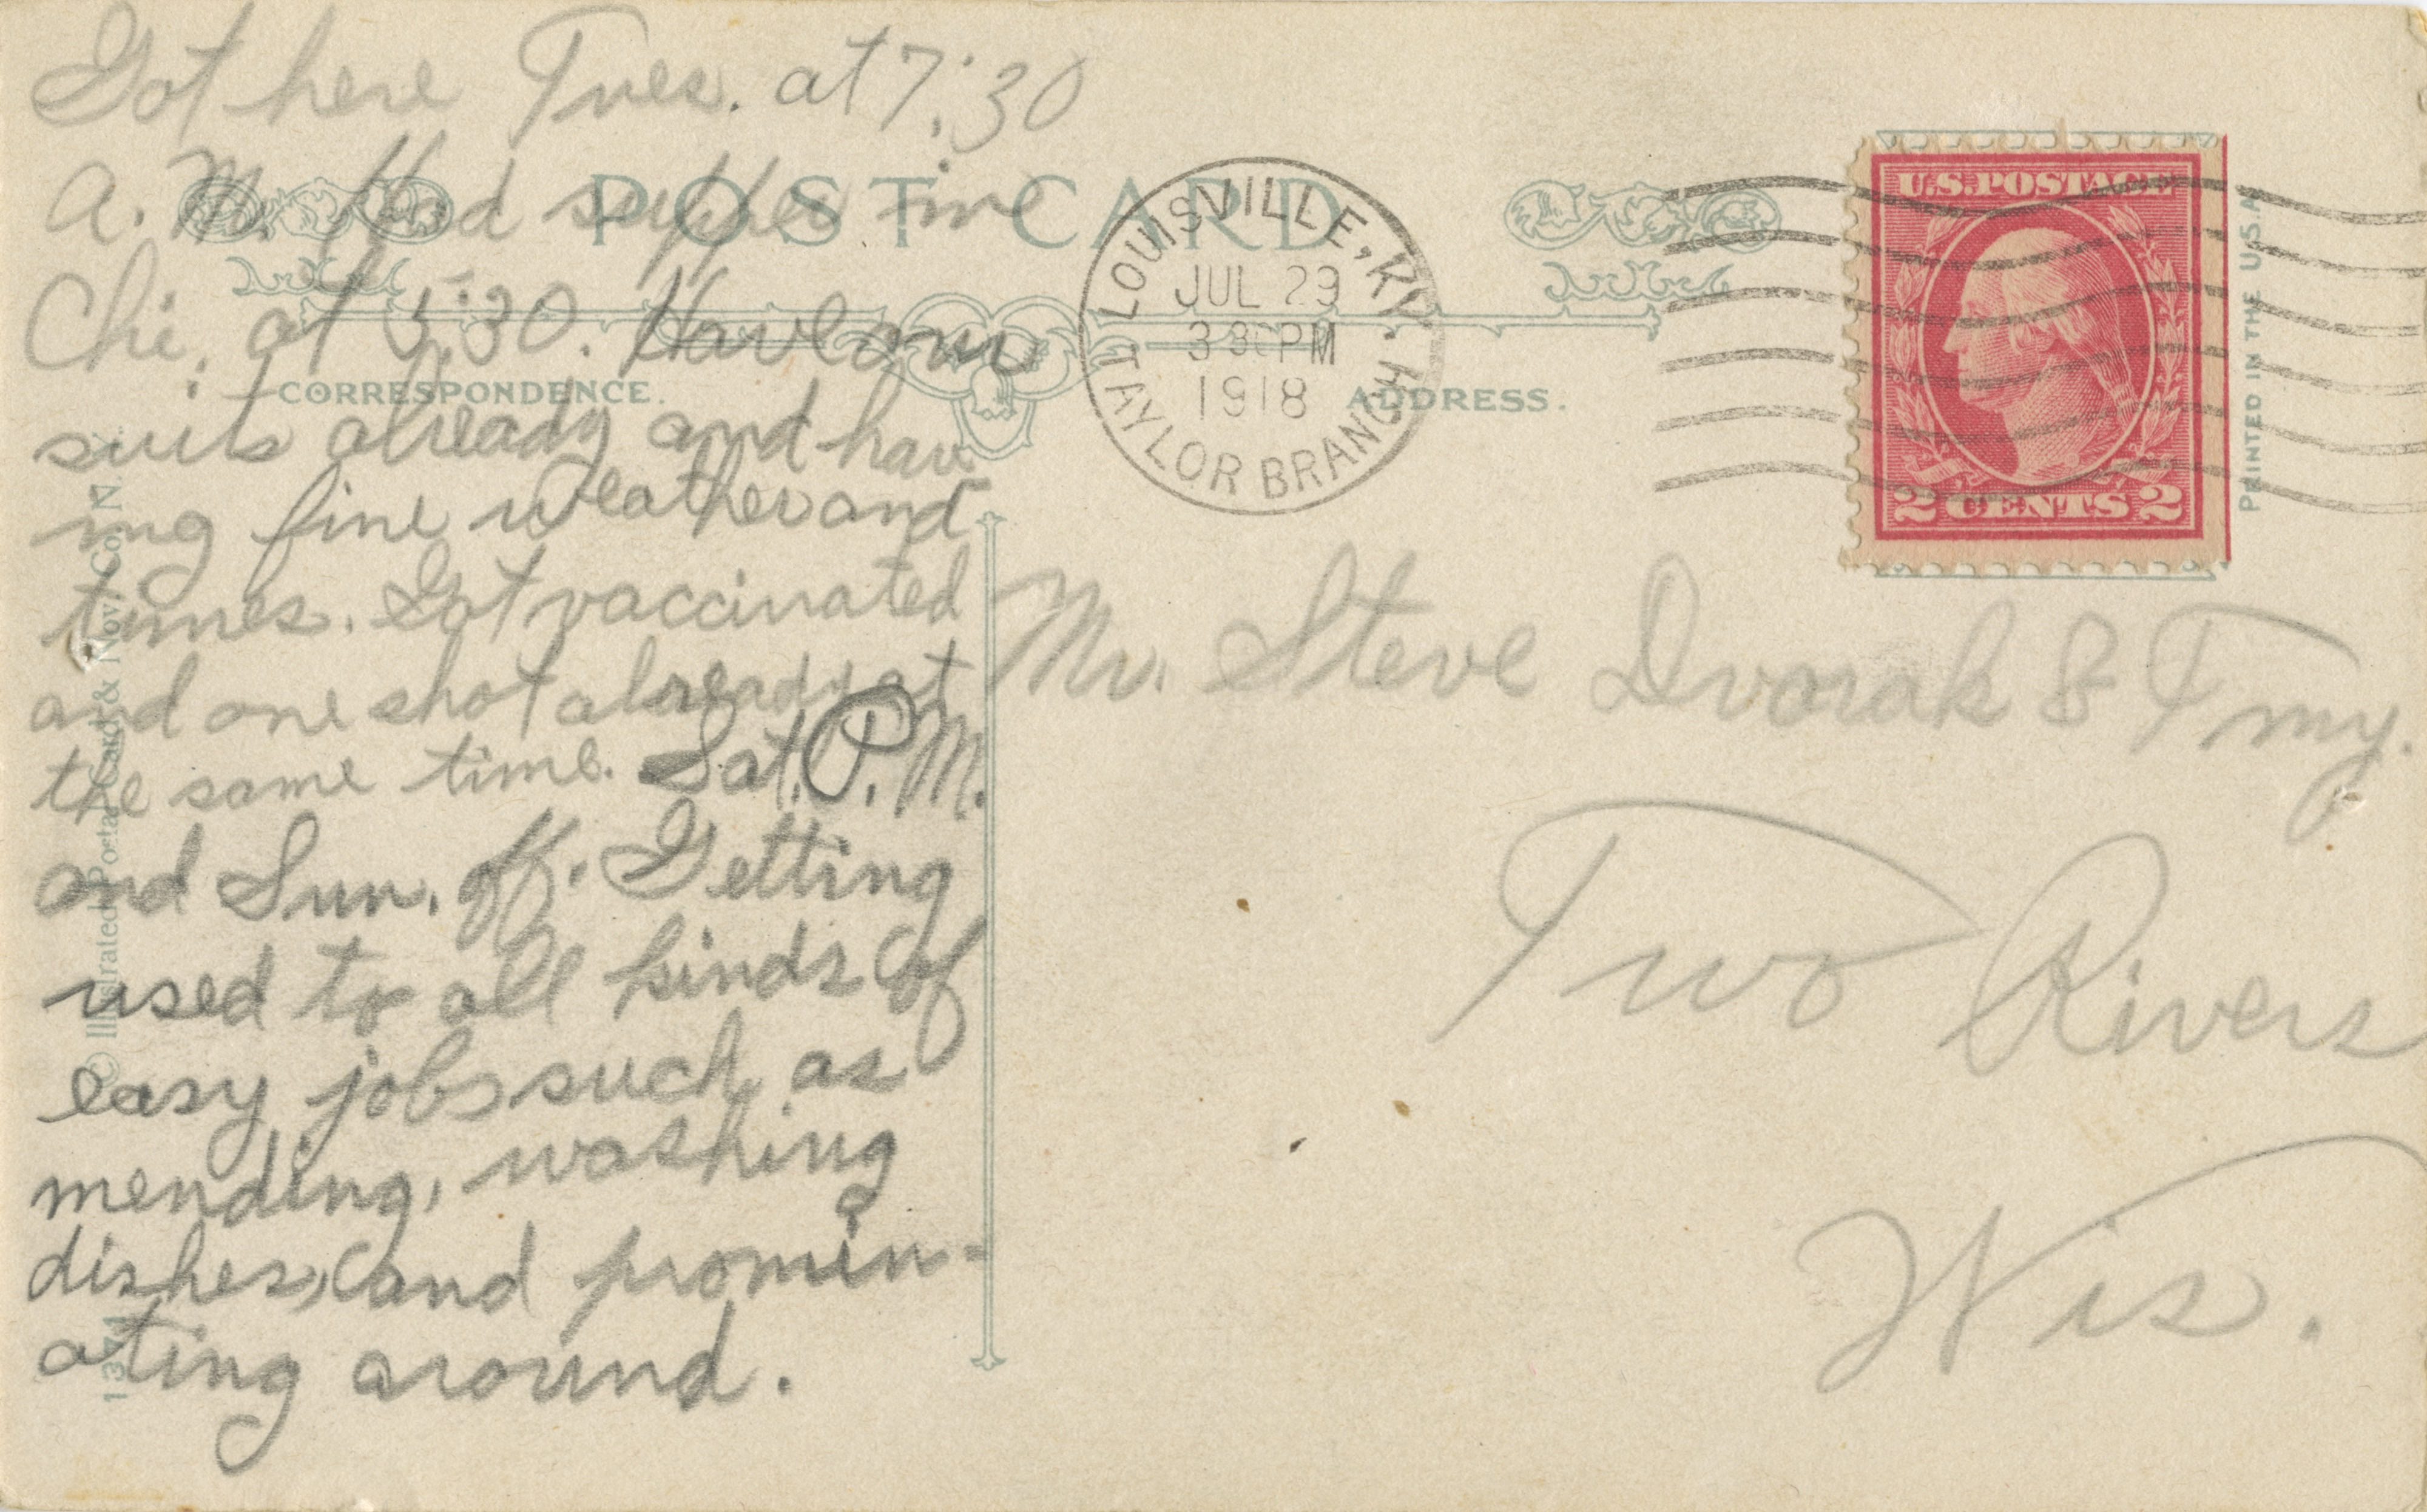 Got here Tues. at 7:30
A. M. Had supper in
Chi. at 5:30. Have our
suits already and hav-
ing fine weather and
times. Got vaccinated
and one shot already at
the same time. Sat. P. M.
and Sun. off. Getting
used to all kinds of
easy jobs such as
mending, washing
dishes, and promin-
ating around.
POST CARD
CORRESPONDENCE.
ADDRESS.
LOUISVILLE, KY.
JUL 29
3 30 PM
1918
TAYLOR BRANCH
U.S. POSTAGE
2 CENTS 2
PRINTED IN THE U.S.A.
Mr. Steve Dvorak & Fmy.
Two Rivers
Wis.
© Illustrated Postal Card & Nov. Co., N. Y.